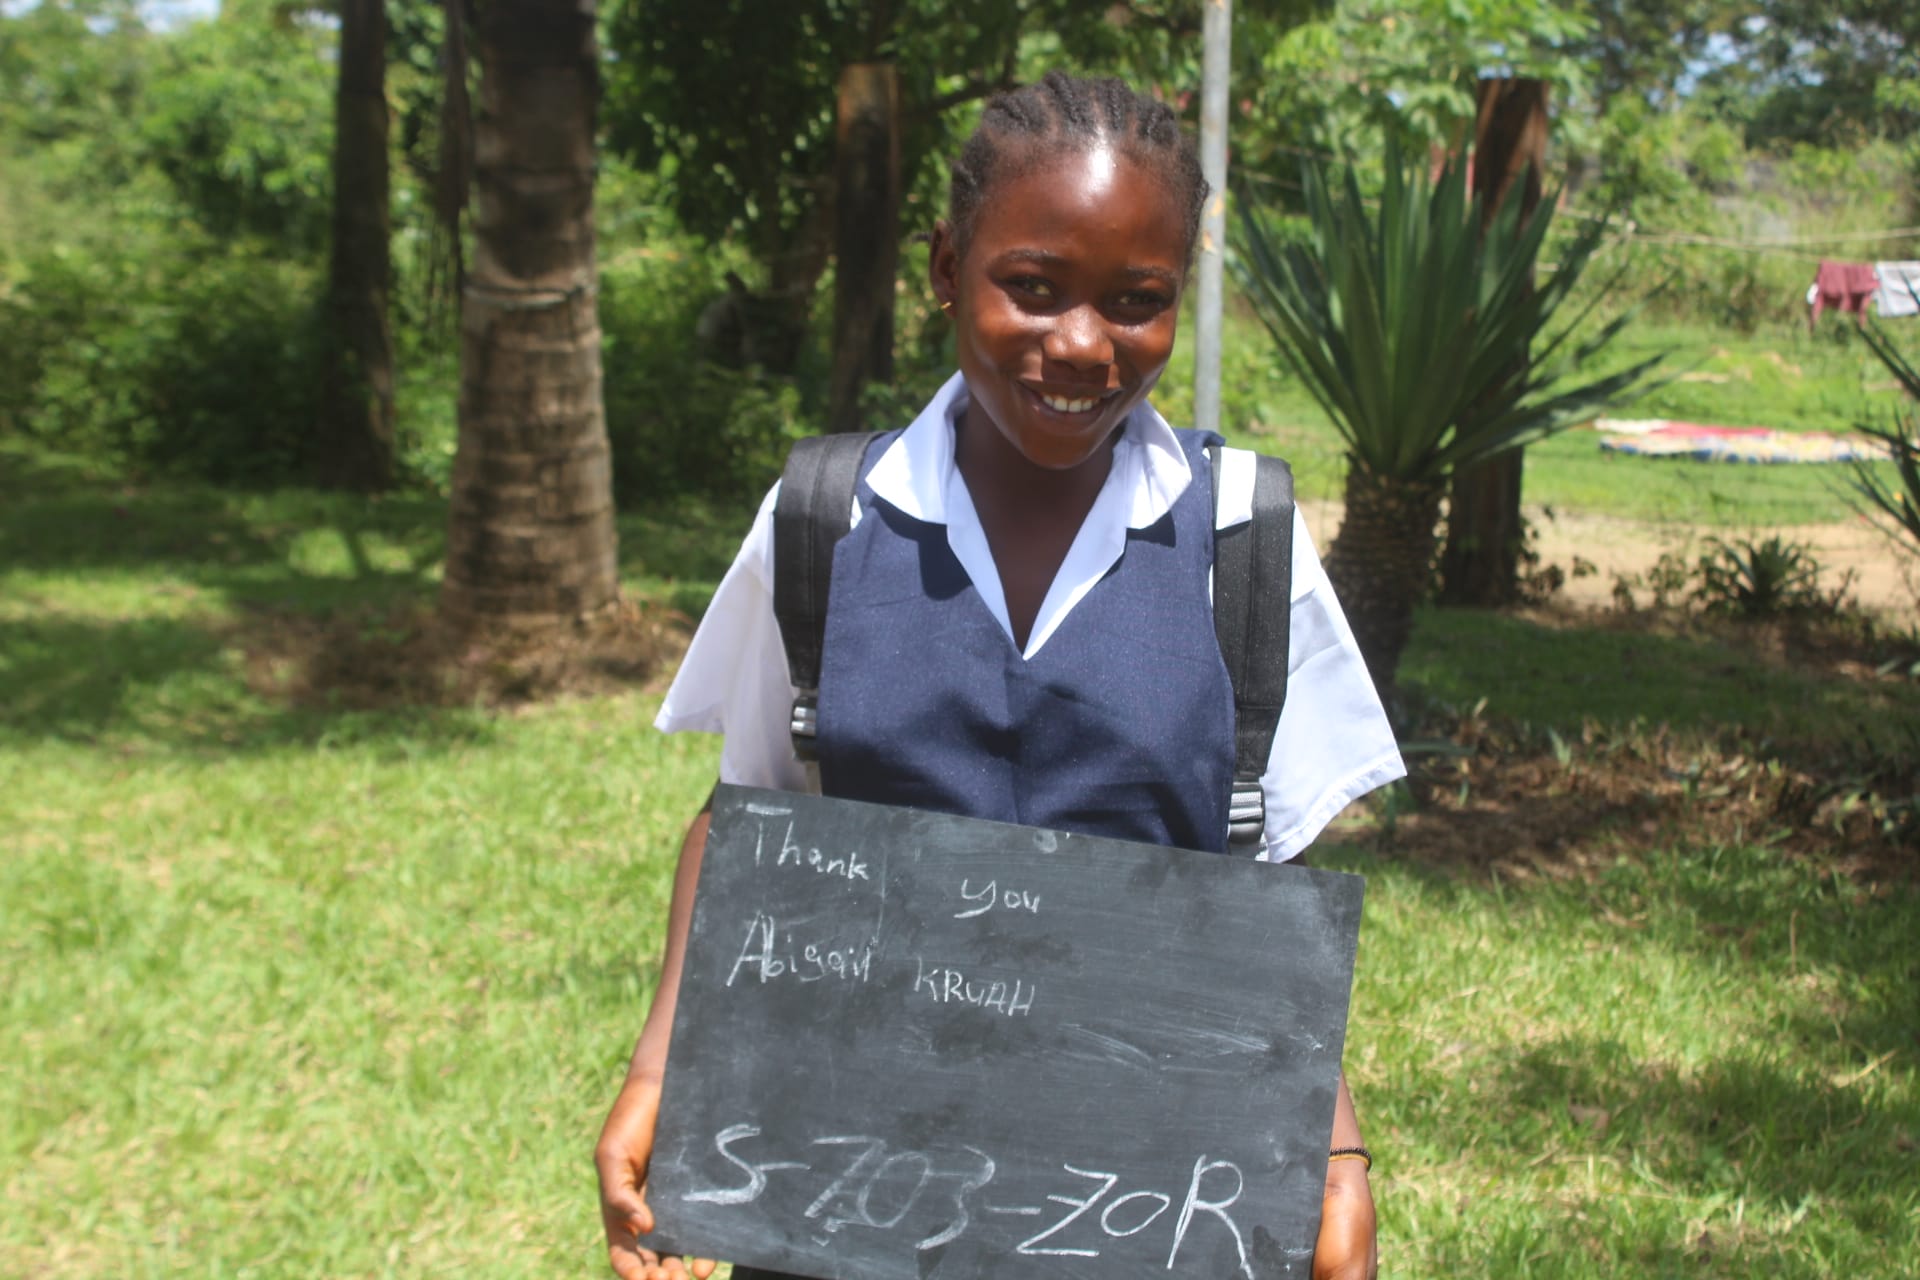 Thank you
Abigail KRUAH
S-703-ZOR